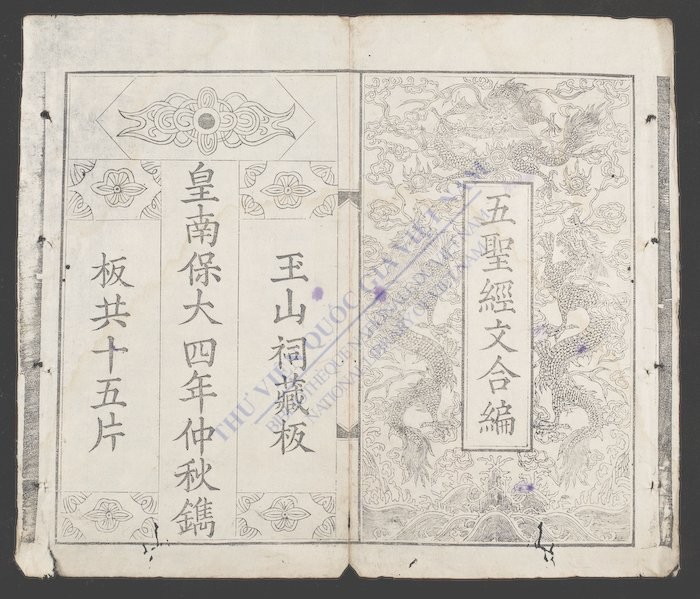 五聖經文合編
玉山祠藏板
皇南保大四年仲秋鐫
板共十五片
THƯ VIỆN QUỐC GIA VIỆT NAM
BIBLIOTHÈQUE NATIONALE DU VIETNAM
NATIONAL LIBRARY OF VIETNAM